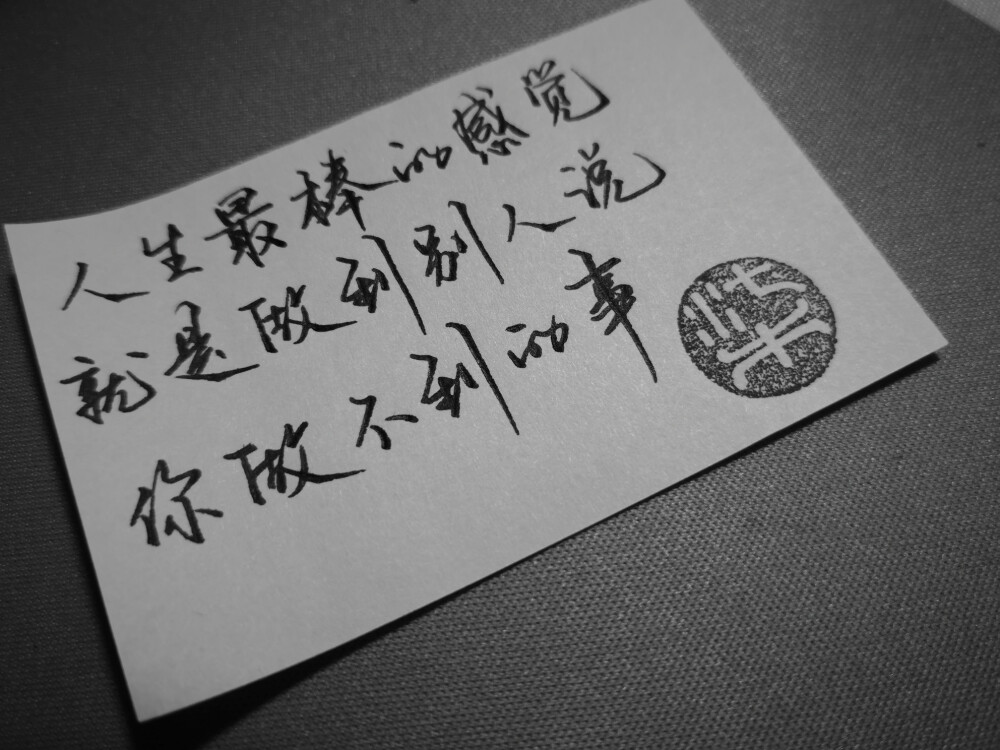 人生最棒的感觉
就是做到别人说
你做不到的事